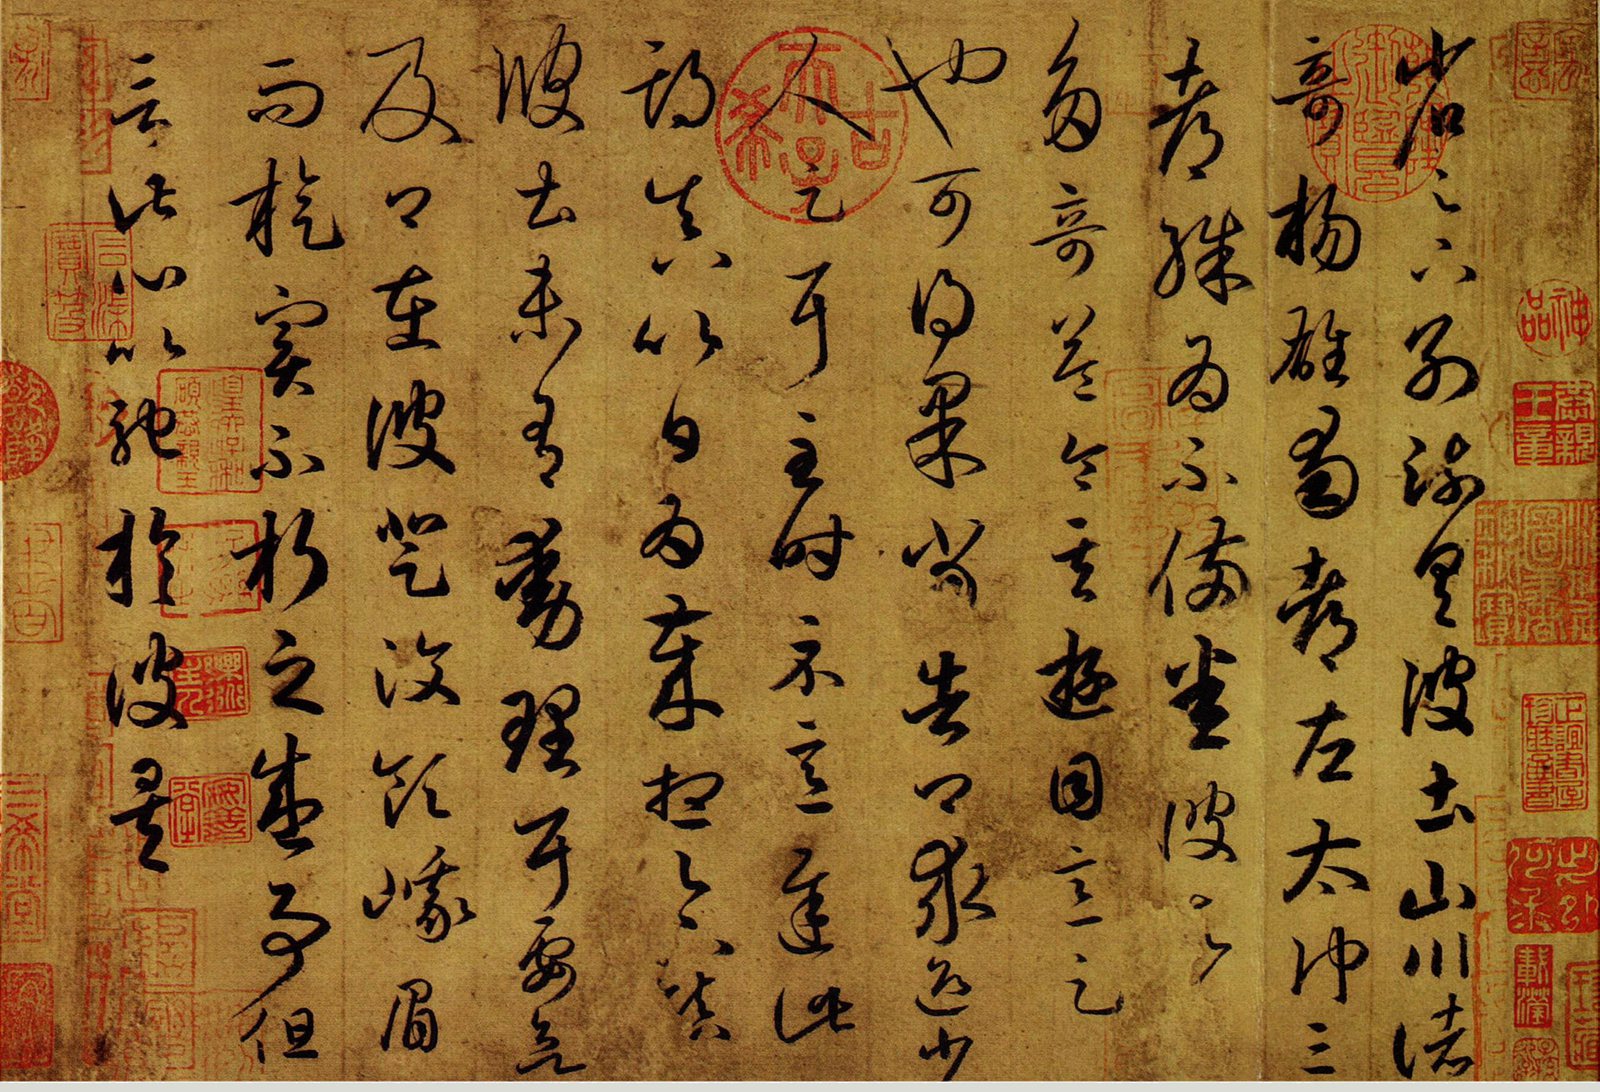 省足下別疏具彼土山川諸
奇揚雄蜀都左太沖三
都殊為不備悉彼故為
多奇益令其遊目意足
也可得果當告卿求迎少
人足耳至時示意遲此
期真以日為歲想足下鎮
彼土未有動理耳要欲
及卿在彼登汶領峨眉
而旋實不朽之盛事但
言此心以馳於彼矣
乾隆御覽之寶
古希天子
神品
三希堂